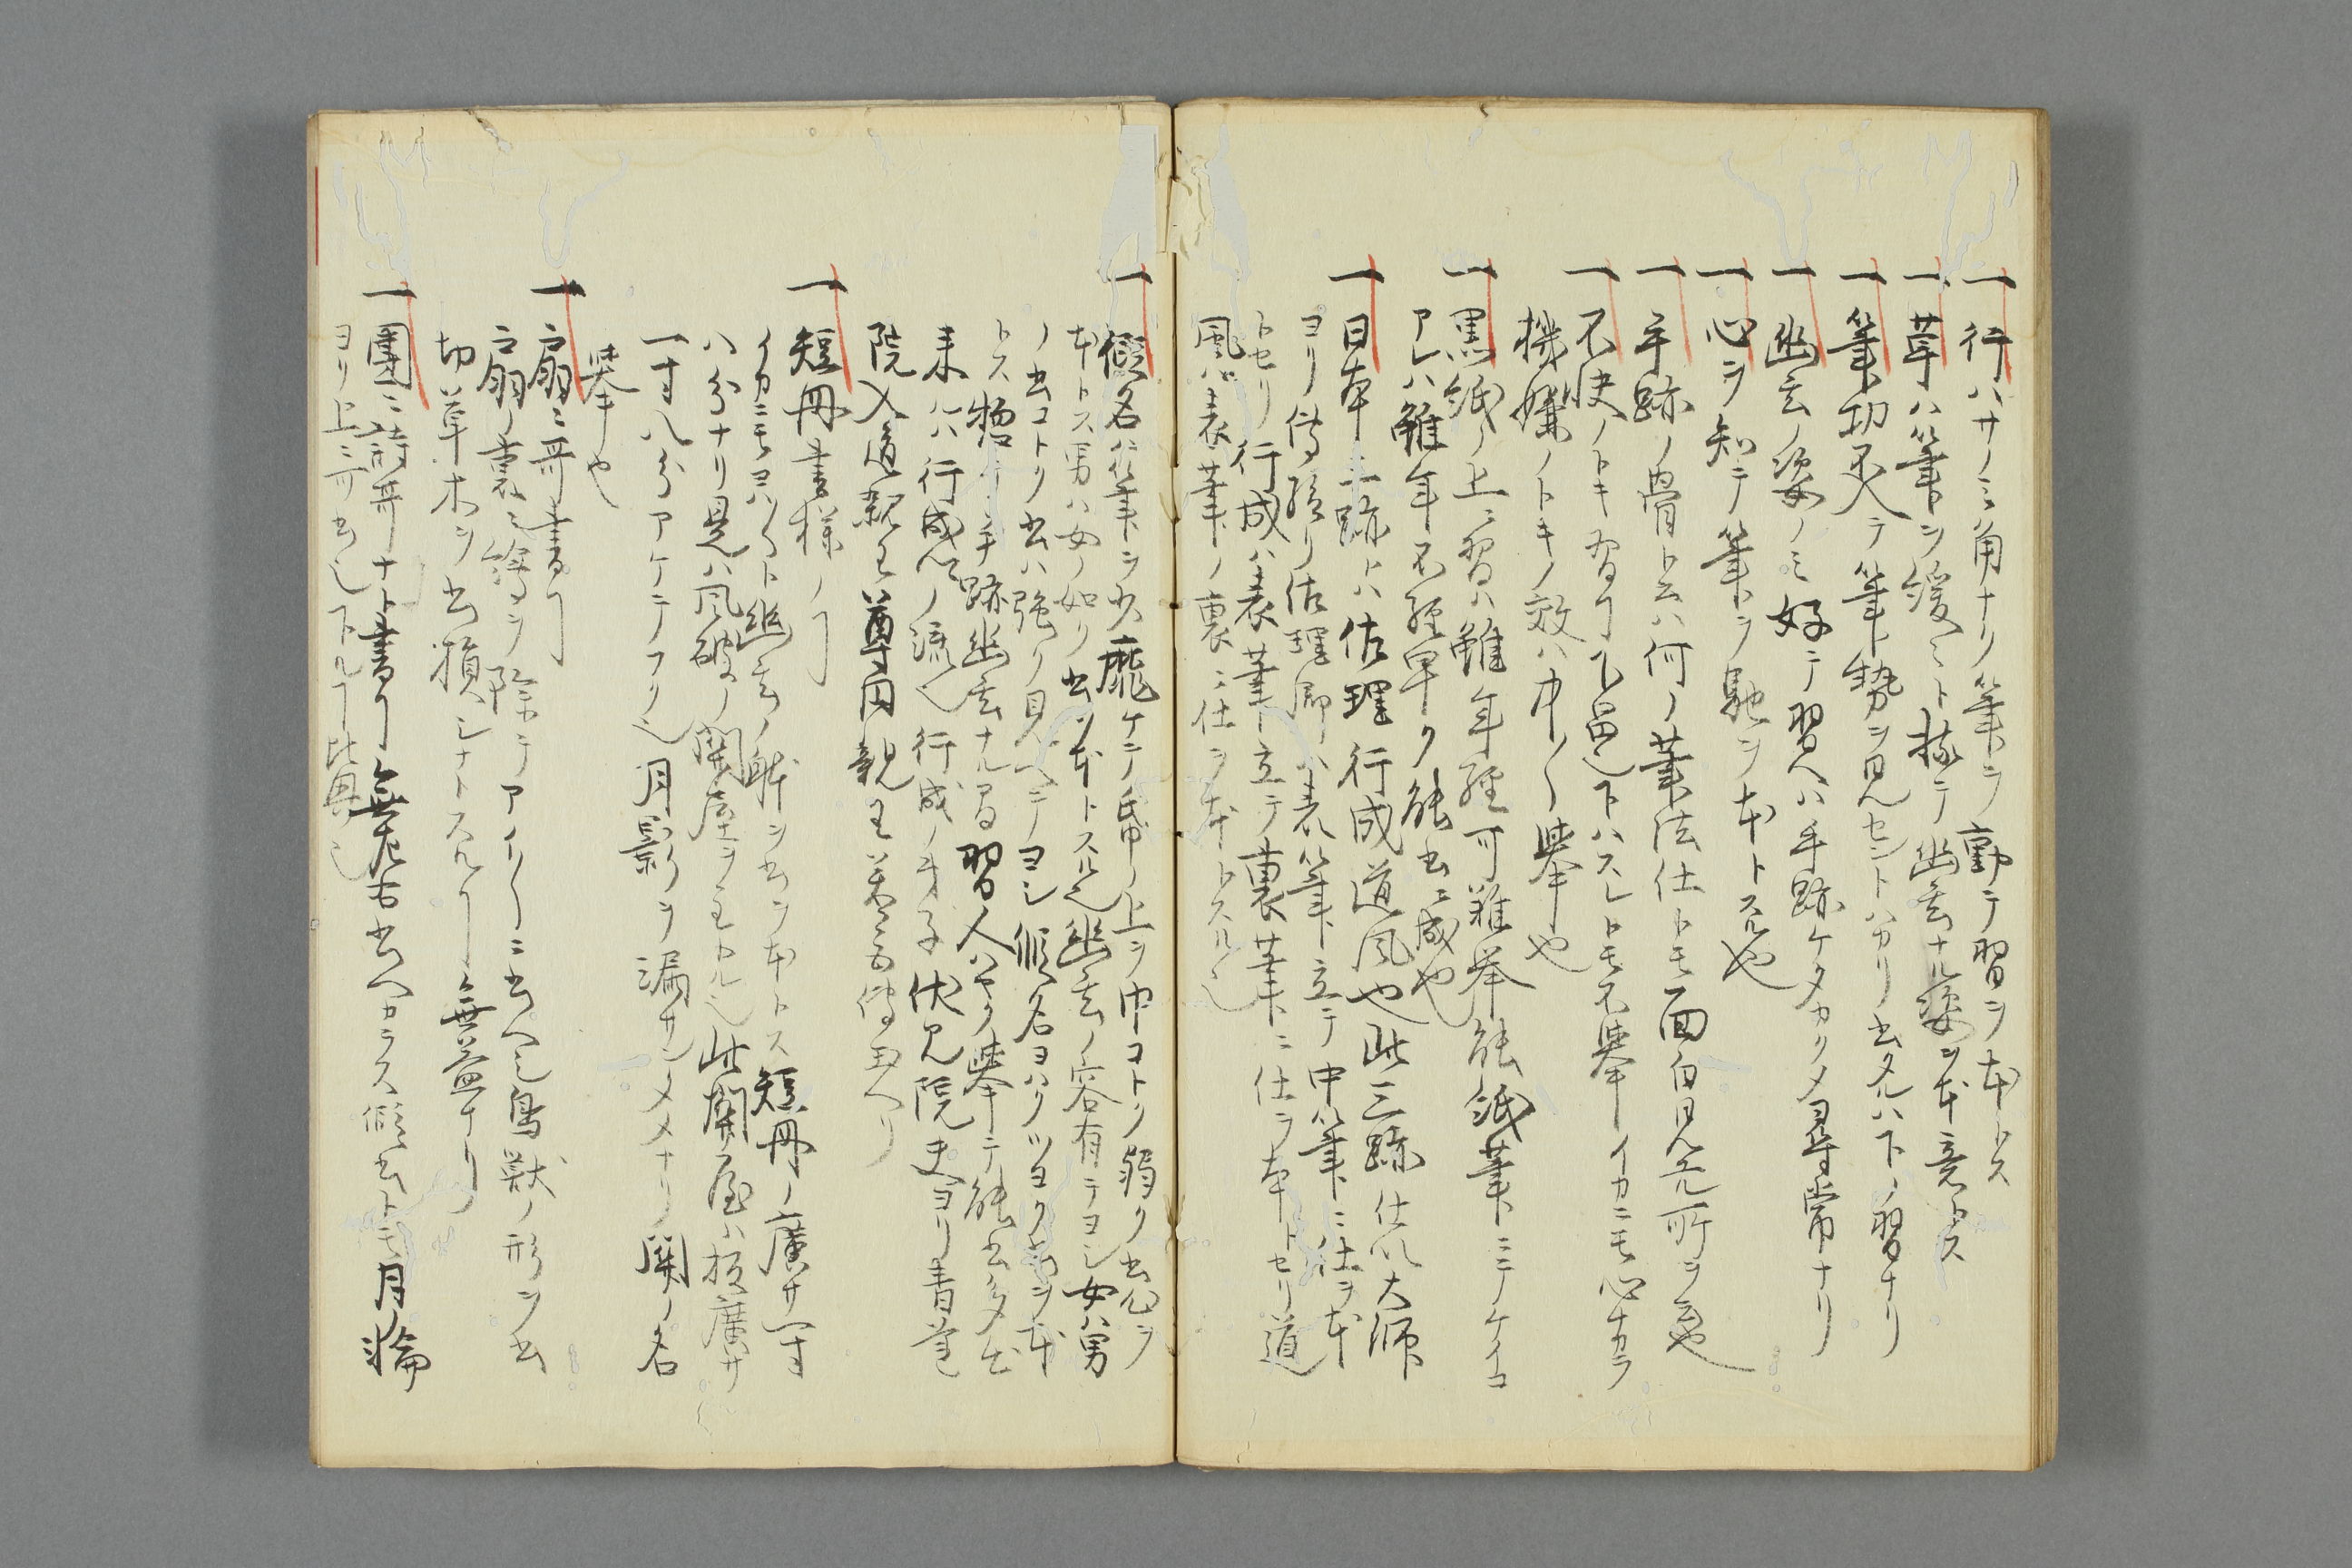 一 行ハサノミ角ナク筆ヲ動テ習ヲ本トス
一 草ハ筆ヲ緩々ト持テ幽玄ナル姿ヲ本意トス
一 筆切ス入テ筆勢ヲ見セントハカリ書タルハ下ノ習ナリ
一 幽玄ノ姿ノミ好テ習ヘハ手跡ケタカクメ尋常ナリ
一 心ヲ知テ筆ヲ馳ヲ本トスル也
一 手跡ノ骨ト云ハ何ノ筆法仕トモ面白見元所ヲ云也
一 不快ノトキ習フ下ハスレトモ不挙イカニモ心ナカラ
機嫌ノトキノ效ハ中々挙也
一 黒紙ノ上ニ習ハ雖年経可難挙能紙筆ニテケイコ
アレハ雖年不経早ク能書ニ成也
一 日本三跡ト八佐理行成道風也此三跡仕ハ大師
ヨリ傳授リ佐理卿ハ表筆立テ中筆ニ仕ヲ本
トセリ行成ハ表筆立テ裏筆ニ仕ヲ本トセリ道
風ハ表筆ノ裏ニ仕ヲ本トスル也
一 假名ハ筆ヲ少靡ケテ帋ノ上ヲ巾コトク弱ク書ヲ
本トス男ハ女ノ如ク書ヲ本トスル也幽玄ノ容有テヨシ女ハ男
ノ書コトク書ハ強ク見ヘテヨシ假名ヨハクツヨク書ヲ本
トス惣テ手跡幽玄ナル習人ハヤク挙テ能書多出
来ルハ行成ノ流也行成ノ弟子伏見院夫ヨリ青蓮
院入道親王尊円親王善々相傳玉ヘリ
一 短冊書様ノ
イカニモヨハ〱ト幽玄ノ躰ヲ書ヲ本トス短冊ノ廣サ一寸
八分ナリ是ハ不破ノ関屋ヲ立ル也此関屋ハ板廣サ
一寸八分アケテフク也月影ヲ漏サンタメナリ関ノ名
挙也
一 扇ニ哥書
扇ノ裏ニ絵ヲ除テアイ〱ニ書ヘシ鳥獣ノ形ヲ書
切草木ヲ書損シナトスル無益ナリ
一 團ニ詩哥ナト書 無左右書ヘカラス假書トモ月ノ輪
ヨリ上ニ可書也下ルハ比興也